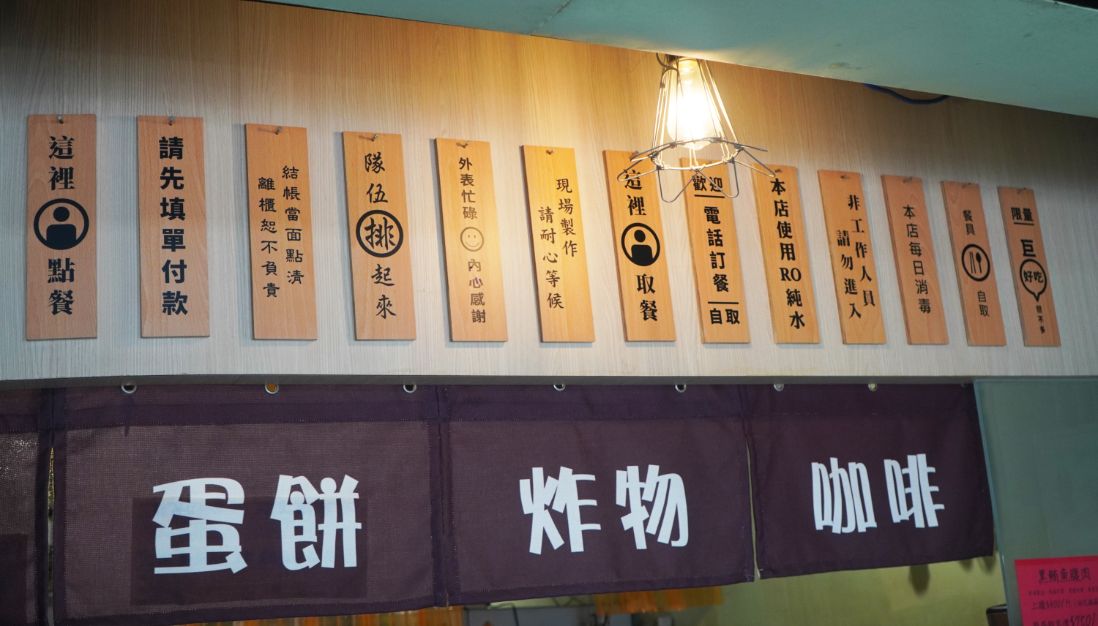 這裡
點餐
請先填單付款
結帳當面點清
離櫃恕不負責
隊伍排起來
外表忙碌
內心感謝
現場製作
請耐心等候
這裡
取餐
歡迎
電話訂餐
自取
本店使用RO純水
非工作人員
請勿進入
本店每日消毒
餐具
自取
限量
巨
好吃
蛋餅
炸物
咖啡